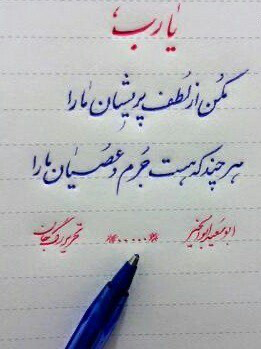 یا رب
مکن از لطف پریشان ما را
هر چند که هست جرم و عصیان ما را
ابوسعید ابوالخیر تحریر